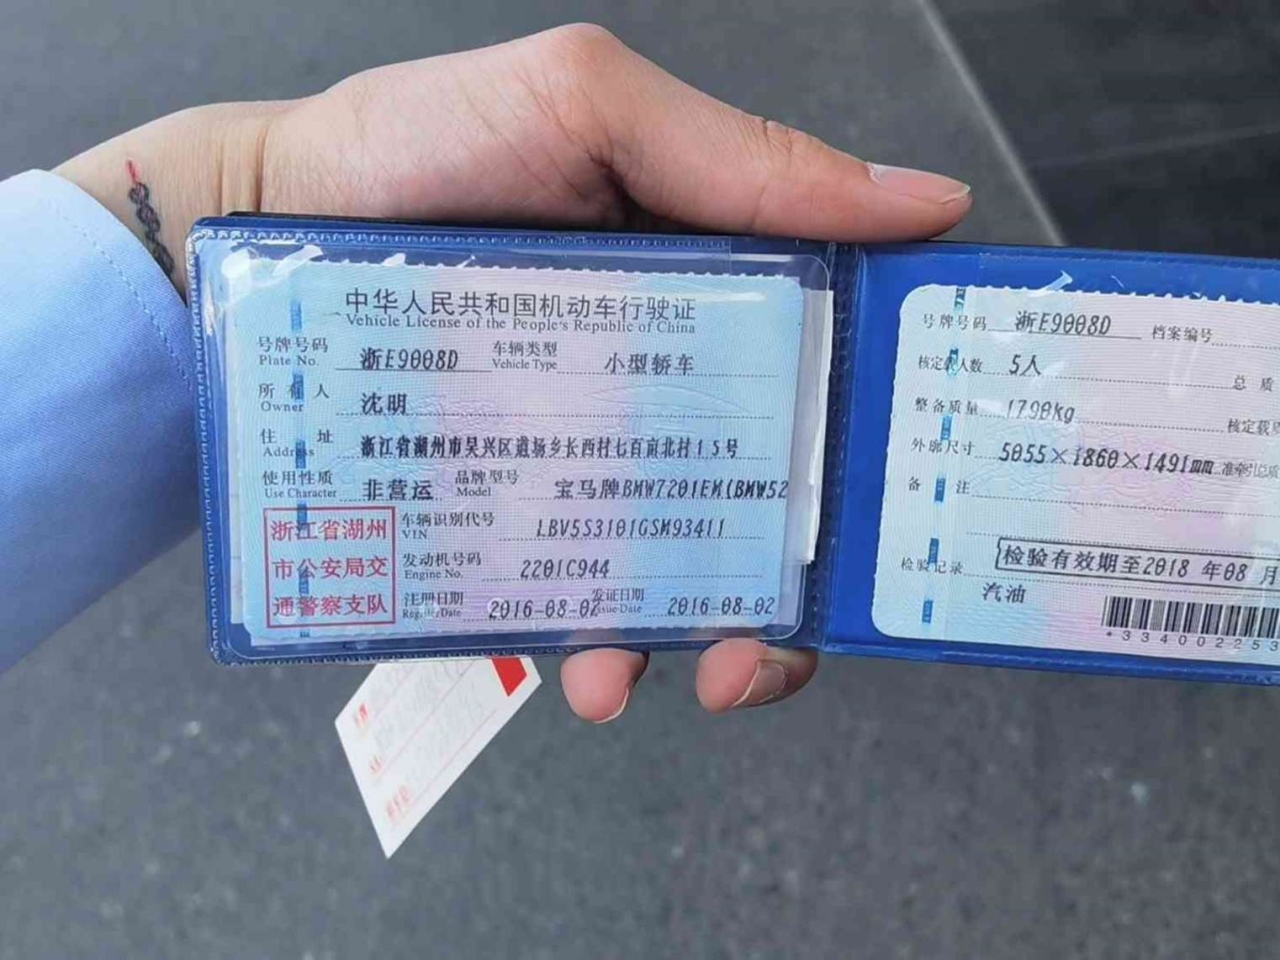 中华人民共和国机动车行驶证
Vehicle License of the People's Republic of China
号牌号码 浙E9008D 车辆类型 小型轿车
Plate No. Vehicle Type
所有人 沈明
Owner
住址 浙江省湖州市吴兴区道场乡长西村七百亩北村15号
Address
使用性质 非营运 品牌型号 宝马牌BMW7201EM(BMW52
Use Character Model
浙江省湖州
市公安局交
通警察支队
车辆识别代号 LBV5S3101GSM93411
VIN
发动机号码 2201C944
Engine No.
注册日期 2016-08-02 发证日期 2016-08-02
Register Date Issue Date
号牌号码 浙E9008D 档案编号
核定载人数 5人 总质
整备质量 1790kg 核定载质
外廓尺寸 5055×1860×1491mm 准牵引总质
备注
检验记录 检验有效期至2018年08月
汽油
*33400225